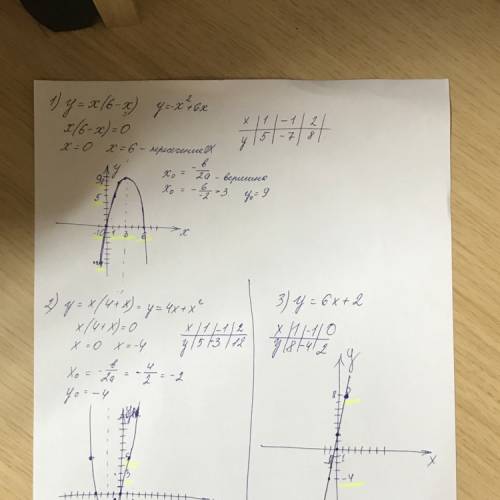 1) y = x(6-x)   y=-x²+6x
x(6-x)=0
x=0   x=6 - пересечение OX
x | 1 | -1 | 2
y | 5 | -7 | 8
x₀ = -b/2a - вершина
x₀ = -6/-2 = 3   y₀ = 9
y
9
5
-1 0 1 3 6   x
2) y = x(4+x) = y = 4x+x²
x(4+x)=0
x=0   x=-4
x | 1 | -1 | 2
y | 5 | -3 | 12
x₀ = -b/2a = -4/2 = -2
y₀ = -4
3) y = 6x+2
x | 1 | -1 | 0
y | 8 | -4 | 2
y
8
1
x
-4